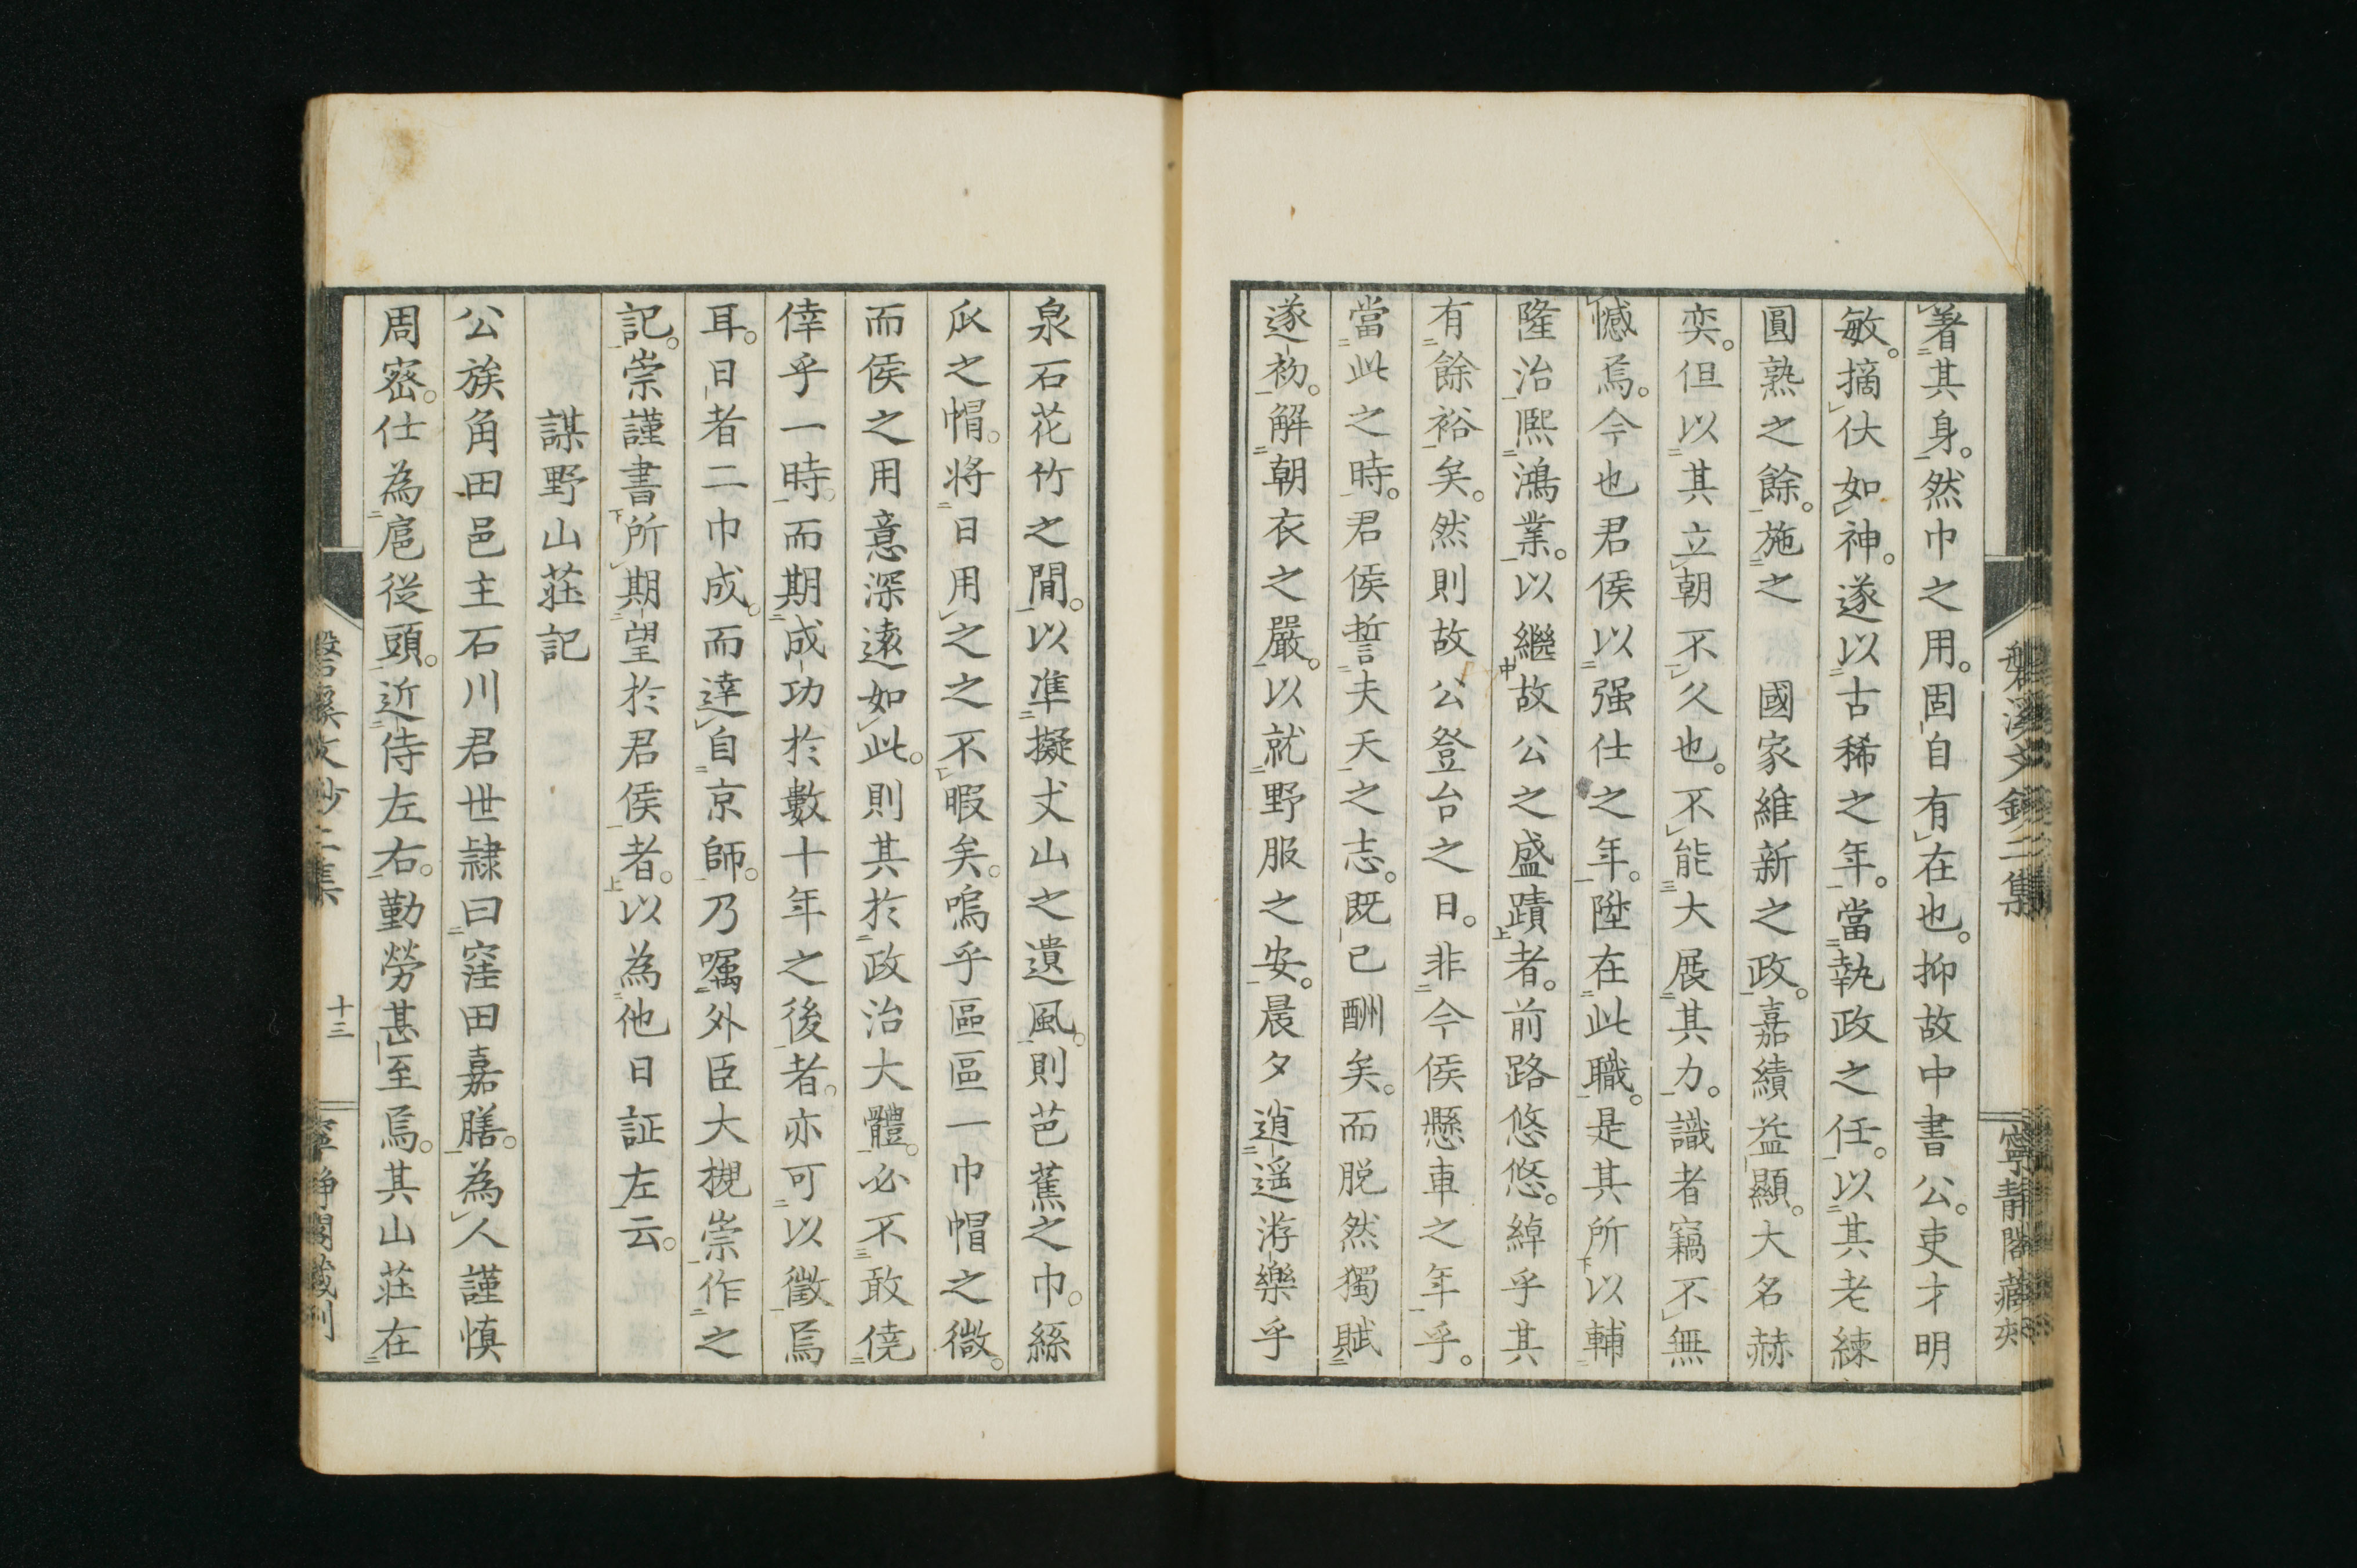 磐溪文鈔二集
寧靜閣藏刻
著其身。然巾之用。固自有在也。抑故中書公。吏才明
敏。摘伏如神。遂以古稀之年。當執政之任。以其老練
圓熟之餘。施之 國家維新之政。嘉績益顯。大名赫
奕。但以其立朝不久也。不能大展其力。識者竊不無
憾焉。今也君侯以强仕之年。陞在此職。是其所以輔
隆治熙鴻業。以繼故公之盛蹟者。前路悠悠。綽乎其
有餘裕矣。然則故公登台之日。非今侯懸車之年乎。
當此之時。君侯誓夫天之志。既已酬矣。而脱然獨賦
遂初。解朝衣之嚴。以就野服之安。晨夕逍遥游樂乎
泉石花竹之間。以準擬丈山之遺風。則芭蕉之巾。絲
瓜之帽。将日用之之不暇矣。嗚乎區區一巾帽之微。
而侯之用意深遠如此。則其於政治大體。必不敢僥
倖乎一時。而期成功於數十年之後者。亦可以徵焉
耳。日者二巾成。而達自京師。乃嘱外臣大槻崇作之
記。崇謹書所期望於君侯者。以為他日証左云。
謀野山莊記
公族角田邑主石川君世隷曰窪田嘉膳。為人謹慎
周密。仕為扈従頭。近侍左右。勤勞甚至焉。其山莊在
磐溪文鈔二集
十三
寧靜閣藏刻